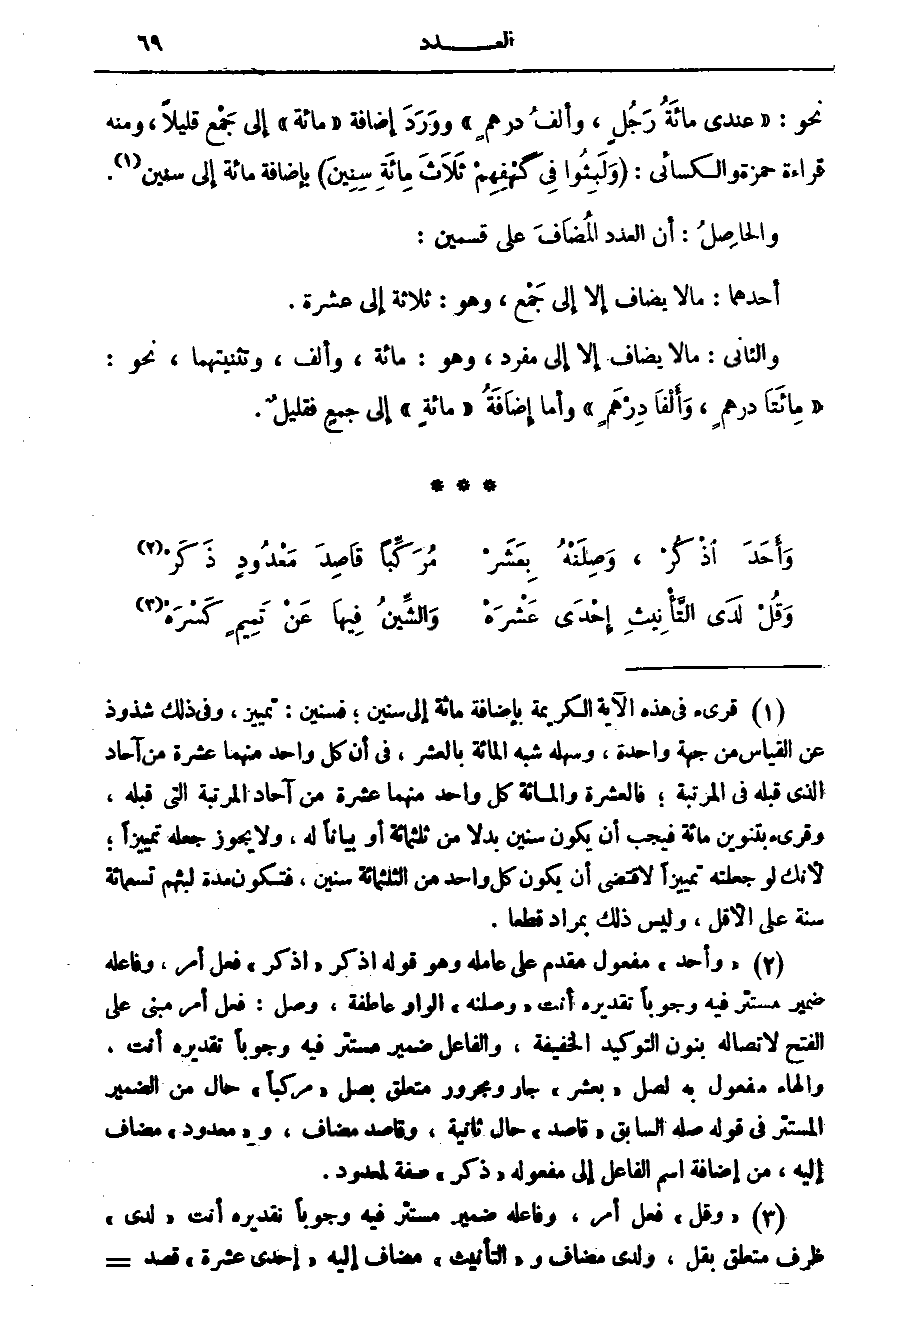 العـــدد ٦٩
نحو : « عندى مائَةُ رَجُلٍ ، وألفُ درهمٍ » ووَرَدَ إضافة « مائة » إلى جَمْعٍ قليلاً ، ومنه
قراءة حمزة والكسائى : (وَلَبِثُوا فِى كَهْفِهِمْ ثَلَاثَ مِائَةِ سِنِينَ) بإضافة مائة إلى سنين (١).
والحاصِلُ : أن العدد المُضَافَ على قسمين :
أحدهما : مالا يضاف إلا إلى جَمْعٍ ، وهو : ثلاثة إلى عشرة .
والثانى : مالا يضاف إلا إلى مفرد ، وهو : مائة ، وألف ، وتثنيتهما ، نحو :
« مِائَتَا درهمٍ ، وَأَلْفَا دِرْهَمٍ » وأما إضَافَةُ « مائةٍ » إلى جمعٍ فقليلٌ .
* * *
وَأَحَدَ اذْكُرْ ، وَصِلَنْهُ بِعَشَرْ مُرَكِّباً قَاصِدَ مَعْدُودٍ ذَكَرْ (٢)
وَقُلْ لَدَى التَّأْنِيثِ إِحْدَى عَشْرَهْ وَالشِّينُ فِيهَا عَنْ تَمِيمٍ كَسْرَهْ (٣)
(١) قرىء فى هذه الآية الكريمة بإضافة مائة إلى سنين ؛ فسنين : تمييز ، وفى ذلك شذوذ
عن القياس من جهة واحدة ، وسهله شبه المائة بالعشر ، فى أن كل واحد منهما عشرة من آحاد
الذى قبله فى المرتبة ؛ فالعشرة والمائة كل واحد منهما عشرة من آحاد المرتبة التى قبله ،
وقرىء بتنوين مائة فيجب أن يكون سنين بدلا من ثلثمائة أو بياناً له ، ولا يجوز جعله تمييزاً ؛
لأنك لو جعلته تمييزاً لاقتضى أن يكون كل واحد من الثلثمائة سنين ، فتكون مدة لبثهم تسعمائة
سنة على الأقل ، وليس ذلك بمراد قطعا .
(٢) « وأحد » مفعول مقدم على عامله وهو قوله اذكر « اذكر » فعل أمر ، وفاعله
ضمير مستتر فيه وجوباً تقديره أنت « وصلنه » الواو عاطفة ، وصل : فعل أمر مبنى على
الفتح لاتصاله بنون التوكيد الخفيفة ، والفاعل ضمير مستتر فيه وجوباً تقديره أنت ،
والهاء مفعول به لصل « بعشر » جار ومجرور متعلق بصل « مركباً » حال من الضمير
المستتر فى قوله صله السابق « قاصد » حال ثانية ، وقاصد مضاف ، و « معدود » مضاف
إليه ، من إضافة اسم الفاعل إلى مفعوله « ذكر » صفة لمعدود .
(٣) « وقل » فعل أمر ، وفاعله ضمير مستتر فيه وجوباً تقديره أنت « لدى »
ظرف متعلق بقل ، ولدى مضاف و « التأنيث » مضاف إليه « إحدى عشرة » قصد =